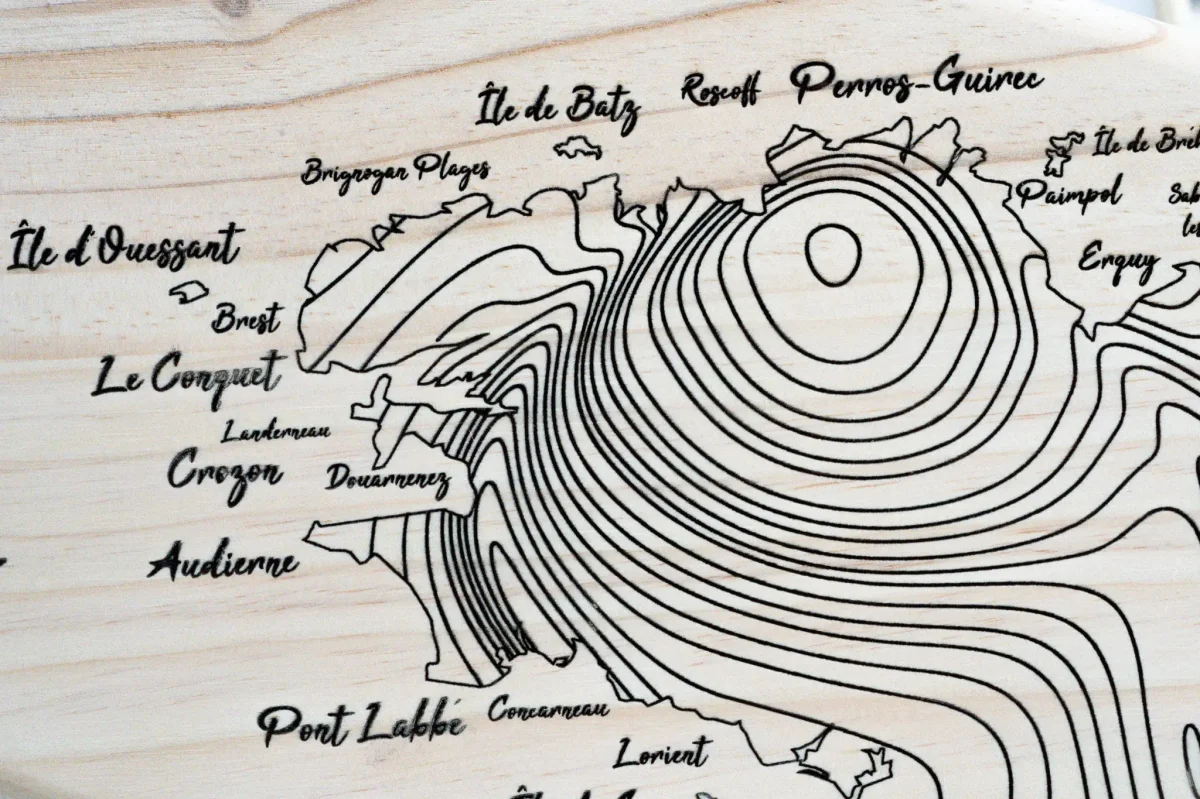 Île de Batz
Roscoff
Perros-Guirec
Brignogan Plages
Île de
Paimpol
Île d'Ouessant
Erquy
Brest
Le Conquet
Landerneau
Crozon
Douarnenez
Audierne
Pont Labbé
Concarneau
Lorient